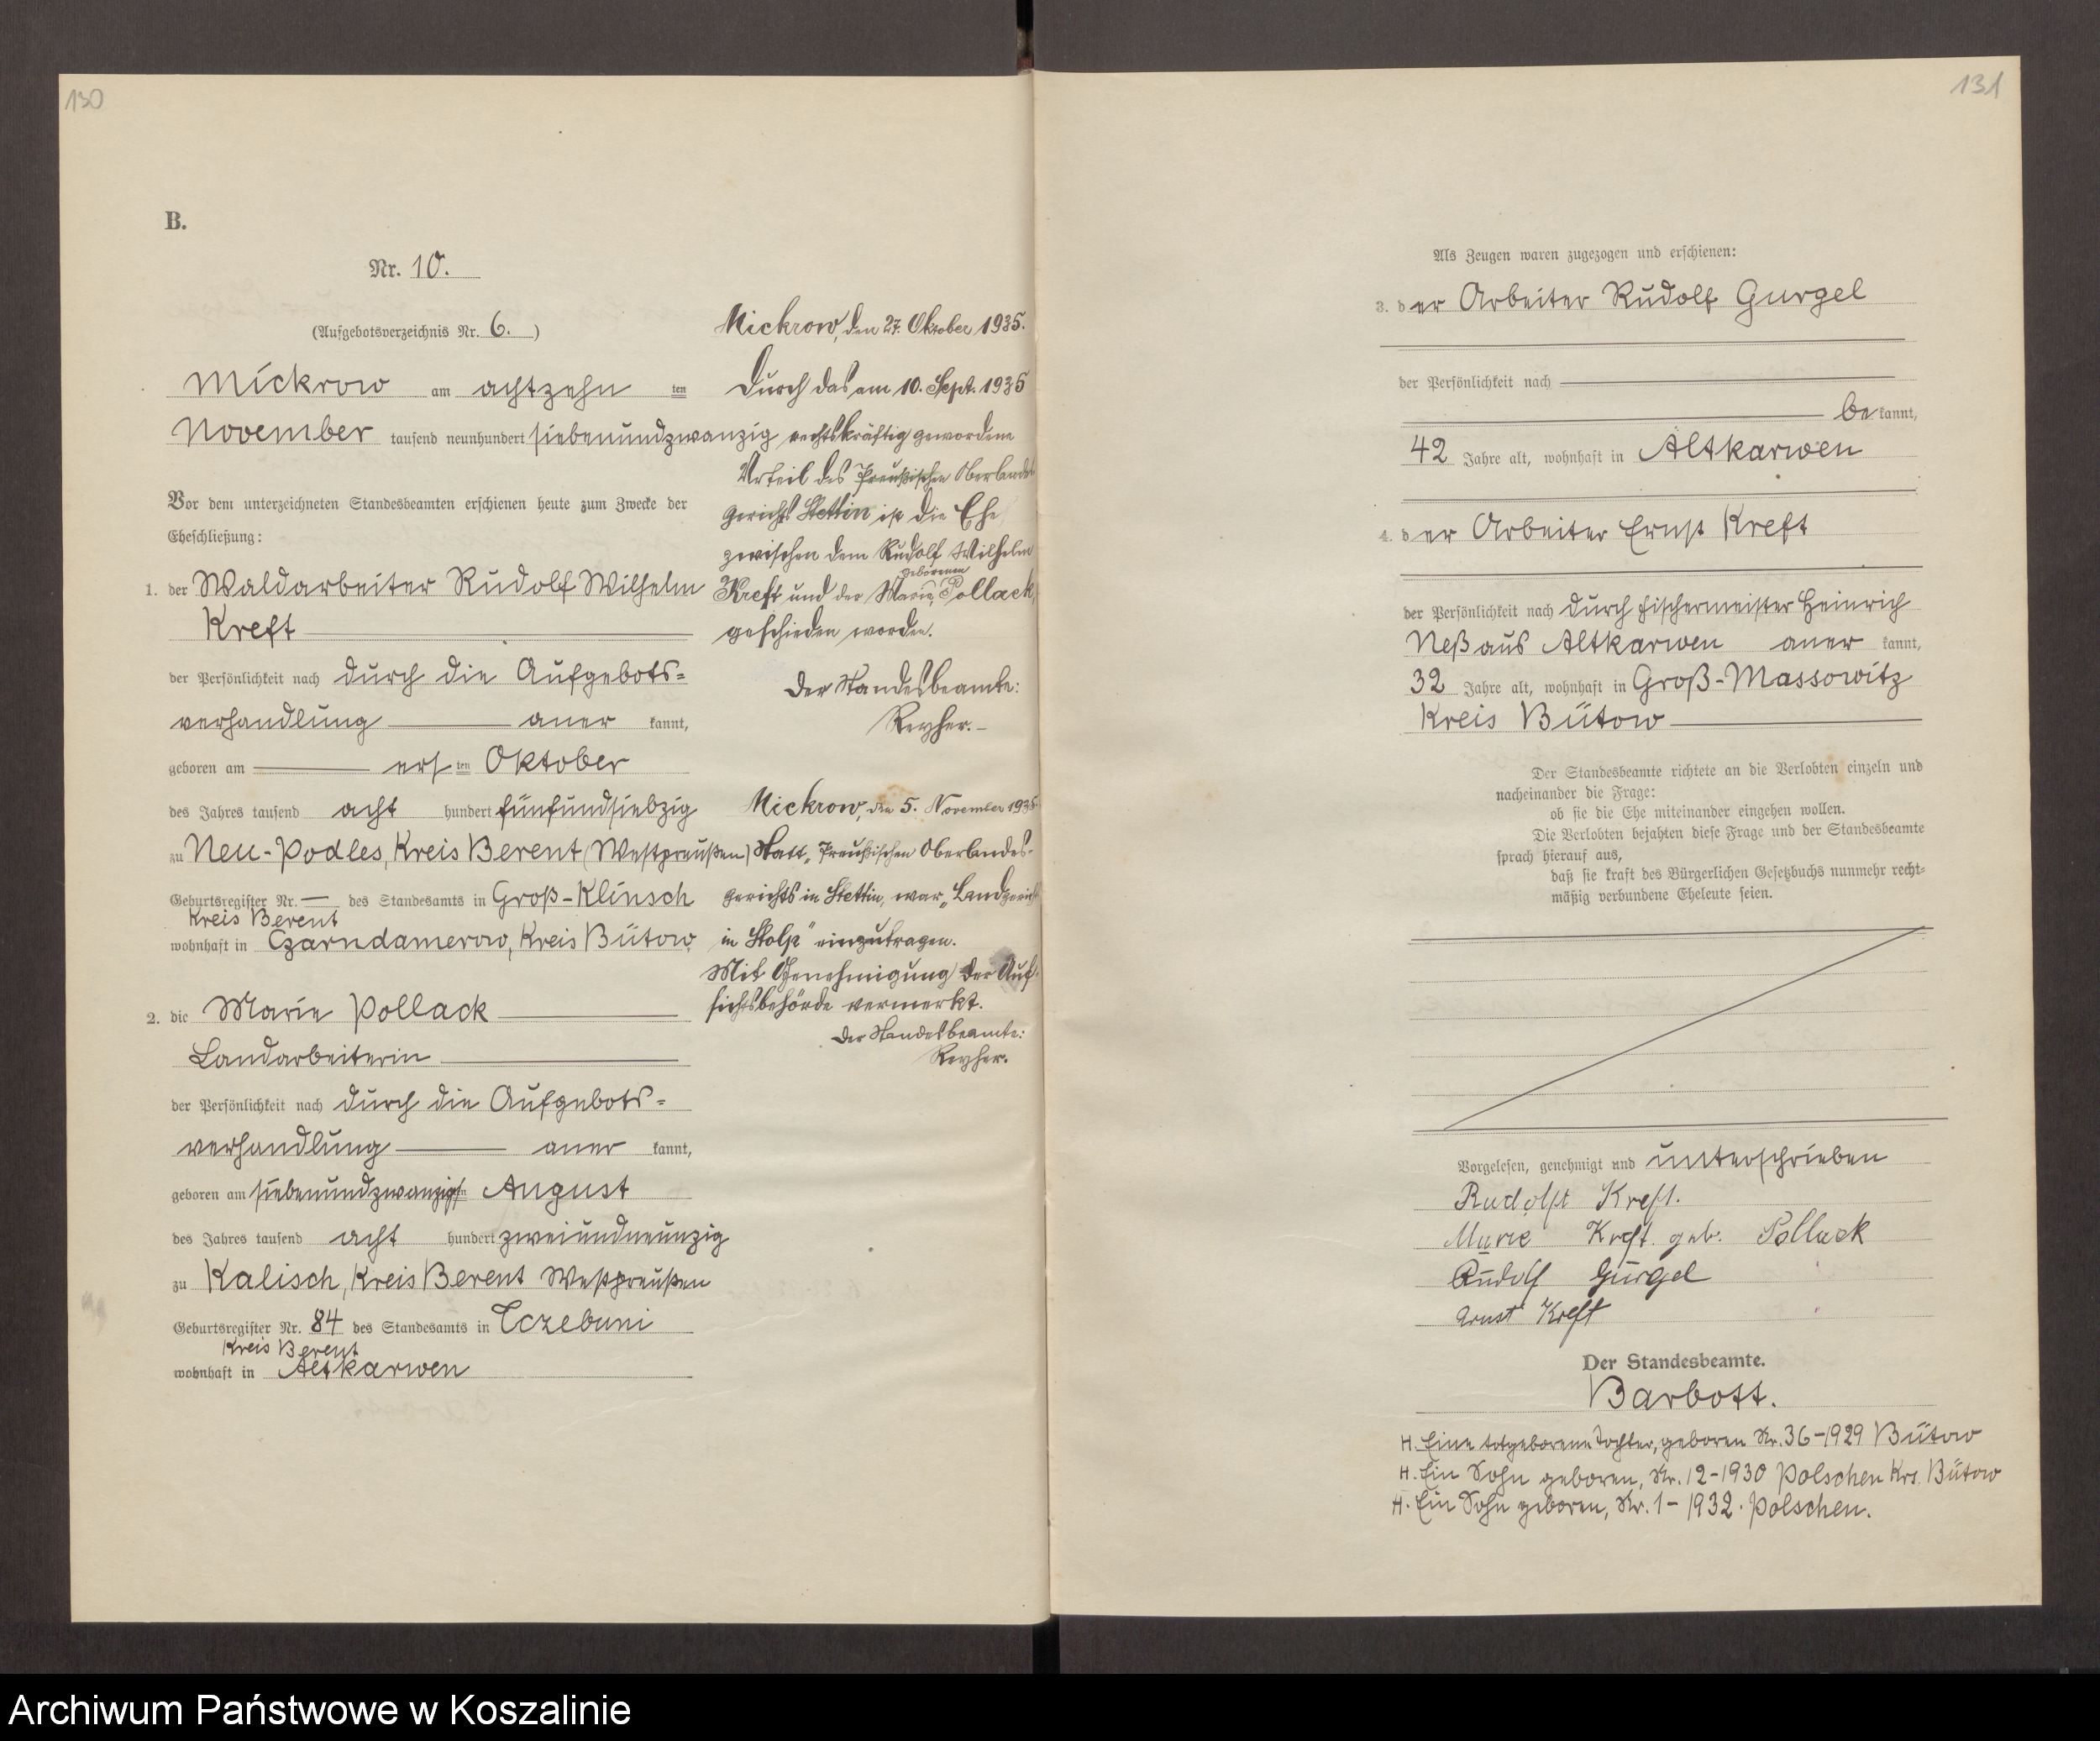 130
B.
Nr. 10.
(Aufgebotsverzeichnis Nr. 6. )
Mickrow am achtzehn ten
November tausend neunhundert siebenundzwanzig
Vor dem unterzeichneten Standesbeamten erschienen heute zum Zwecke der
Eheschließung:
1. der Waldarbeiter Rudolf Wilhelm
Kreft
der Persönlichkeit nach durch die Aufgebots=
verhandlung aner kannt,
geboren am ersten Oktober
des Jahres tausend acht hundert fünfundsiebzig
zu Neu-Podles, Kreis Berent (Westpreußen)
Geburtsregister Nr. — des Standesamts in Groß-Klinsch
Kreis Berent
wohnhaft in Czarndamerow, Kreis Bütow
2. die Marie Pollack
Landarbeiterin
der Persönlichkeit nach durch die Aufgebots=
verhandlung aner kannt,
geboren am siebenundzwanzigsten August
des Jahres tausend acht hundert zweiundneunzig
zu Kalisch, Kreis Berent Westpreußen
Geburtsregister Nr. 84 des Standesamts in Tczebuni
Kreis Berent
wohnhaft in Altkarwen
Mickrow, den 27. Oktober 1935.
Durch das am 10. Sept. 1935
rechtskräftig gewordene
Urteil des Preußischen Oberlandes
gerichts Stettin ist die Ehe
zwischen dem Rudolf Wilhelm
geborenen
Kreft und der Marie, Pollack,
geschieden worden.
Der Standesbeamte:
Reyher.-
Mickrow, den 5. November 1935.
Statt „Preußischen Oberlandes-
gerichts in Stettin, war „Landgericht
in Stolp" einzutragen.
Mit Genehmigung der Auf-
sichtsbehörde vermerkt.
Der Standesbeamte:
Reyher.
131
Als Zeugen waren zugezogen und erschienen:
3. der Arbeiter Rudolf Gurgel
der Persönlichkeit nach
be kannt,
42 Jahre alt, wohnhaft in Altkarwen
4. der Arbeiter Ernst Kreft
der Persönlichkeit nach durch Fischermeister Heinrich
Neß aus Altkarwen aner kannt,
32 Jahre alt, wohnhaft in Groß-Massowitz
Kreis Bütow
Der Standesbeamte richtete an die Verlobten einzeln und
nacheinander die Frage:
ob sie die Ehe miteinander eingehen wollen.
Die Verlobten bejahten diese Frage und der Standesbeamte
sprach hierauf aus,
daß sie kraft des Bürgerlichen Gesetzbuchs nunmehr recht=
mäßig verbundene Eheleute seien.
Vorgelesen, genehmigt und unterschrieben
Rudolf Kreft.
Marie Kreft. geb. Pollack
Rudolf Gurgel
Ernst Kreft
Der Standesbeamte.
Barbott.
H. Eine totgeborene Tochter, geboren Nr. 36-1929 Bütow
H. Ein Sohn geboren, Nr. 12-1930 Polschen Krs. Bütow
H. Ein Sohn geboren, Nr. 1-1932. Polschen.
Archiwum Państwowe w Koszalinie